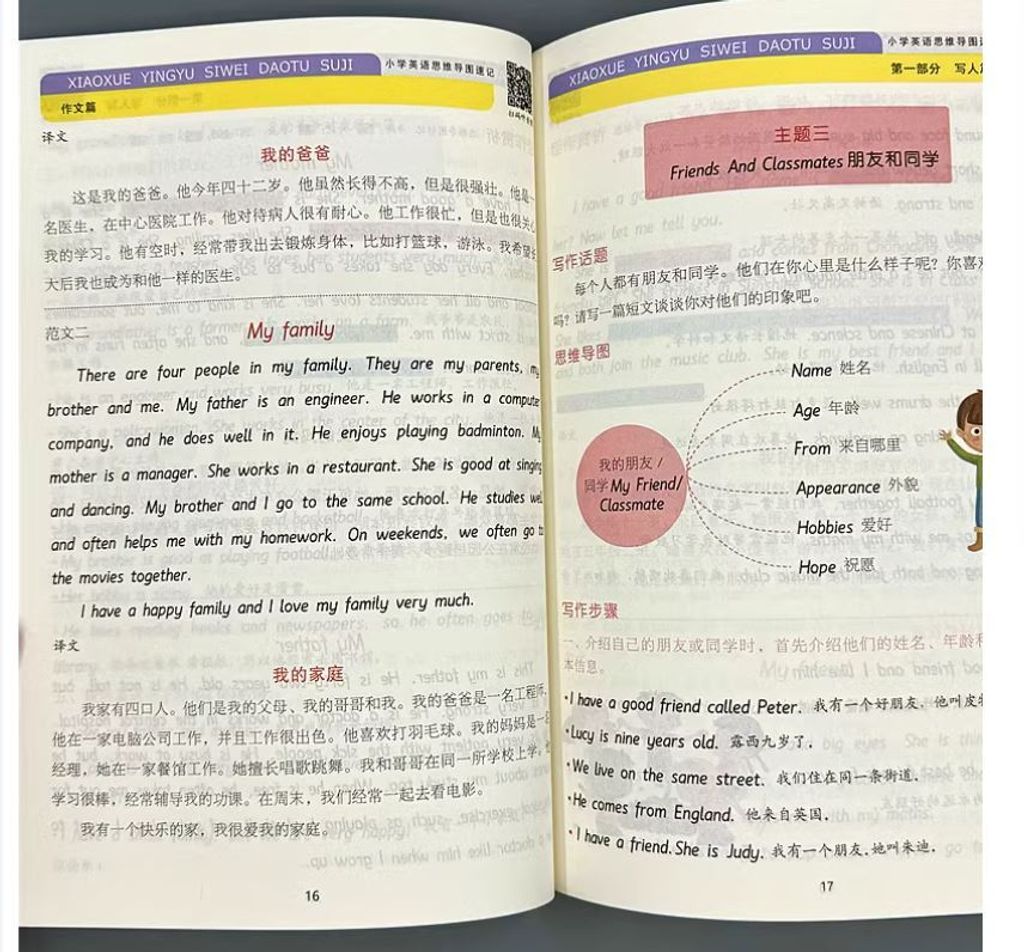 XIAOXUE YINGYU SIWEI DAOTU SUJI
小学英语思维导图速记
作文篇
译文
我的爸爸
这是我的爸爸。他今年四十二岁。他虽然长得不高，但是很强壮。他是一
名医生，在中心医院工作。他对待病人很有耐心。他工作很忙，但是也很关心
我的学习。他有空时，经常带我出去锻炼身体，比如打篮球，游泳。我希望长
大后我也成为和他一样的医生。
范文二
My family
There are four people in my family. They are my parents, my
brother and me. My father is an engineer. He works in a computer
company, and he does well in it. He enjoys playing badminton. My
mother is a manager. She works in a restaurant. She is good at singing
and dancing. My brother and I go to the same school. He studies well
and often helps me with my homework. On weekends, we often go to
the movies together.
I have a happy family and I love my family very much.
译文
我的家庭
我家有四口人。他们是我的父母、我的哥哥和我。我的爸爸是一名工程师，
他在一家电脑公司工作，并且工作很出色。他喜欢打羽毛球。我的妈妈是一名
经理，她在一家餐馆工作。她擅长唱歌跳舞。我和哥哥在同一所学校上学。
学习很棒，经常辅导我的功课。在周末，我们经常一起去看电影。
我有一个快乐的家，我很爱我的家庭。
16
XIAOXUE YINGYU SIWEI DAOTU SUJI
小学英语思维导图
第一部分 写人
主题三
Friends And Classmates 朋友和同学
写作话题
每个人都有朋友和同学。他们在你心里是什么样子呢？你喜
吗？请写一篇短文谈谈你对他们的印象吧。
思维导图
我的朋友 /
同学My Friend/
Classmate
Name 姓名
Age 年龄
From 来自哪里
Appearance 外貌
Hobbies 爱好
Hope 祝愿
写作步骤
一、介绍自己的朋友或同学时，首先介绍他们的姓名、年龄
本信息。
·I have a good friend called Peter. 我有一个好朋友，他叫皮
·Lucy is nine years old. 露西九岁了.
·We live on the same street. 我们住在同一条街道.
·He comes from England. 他来自英国.
·I have a friend. She is Judy. 我有一个朋友，她叫朱迪.
17